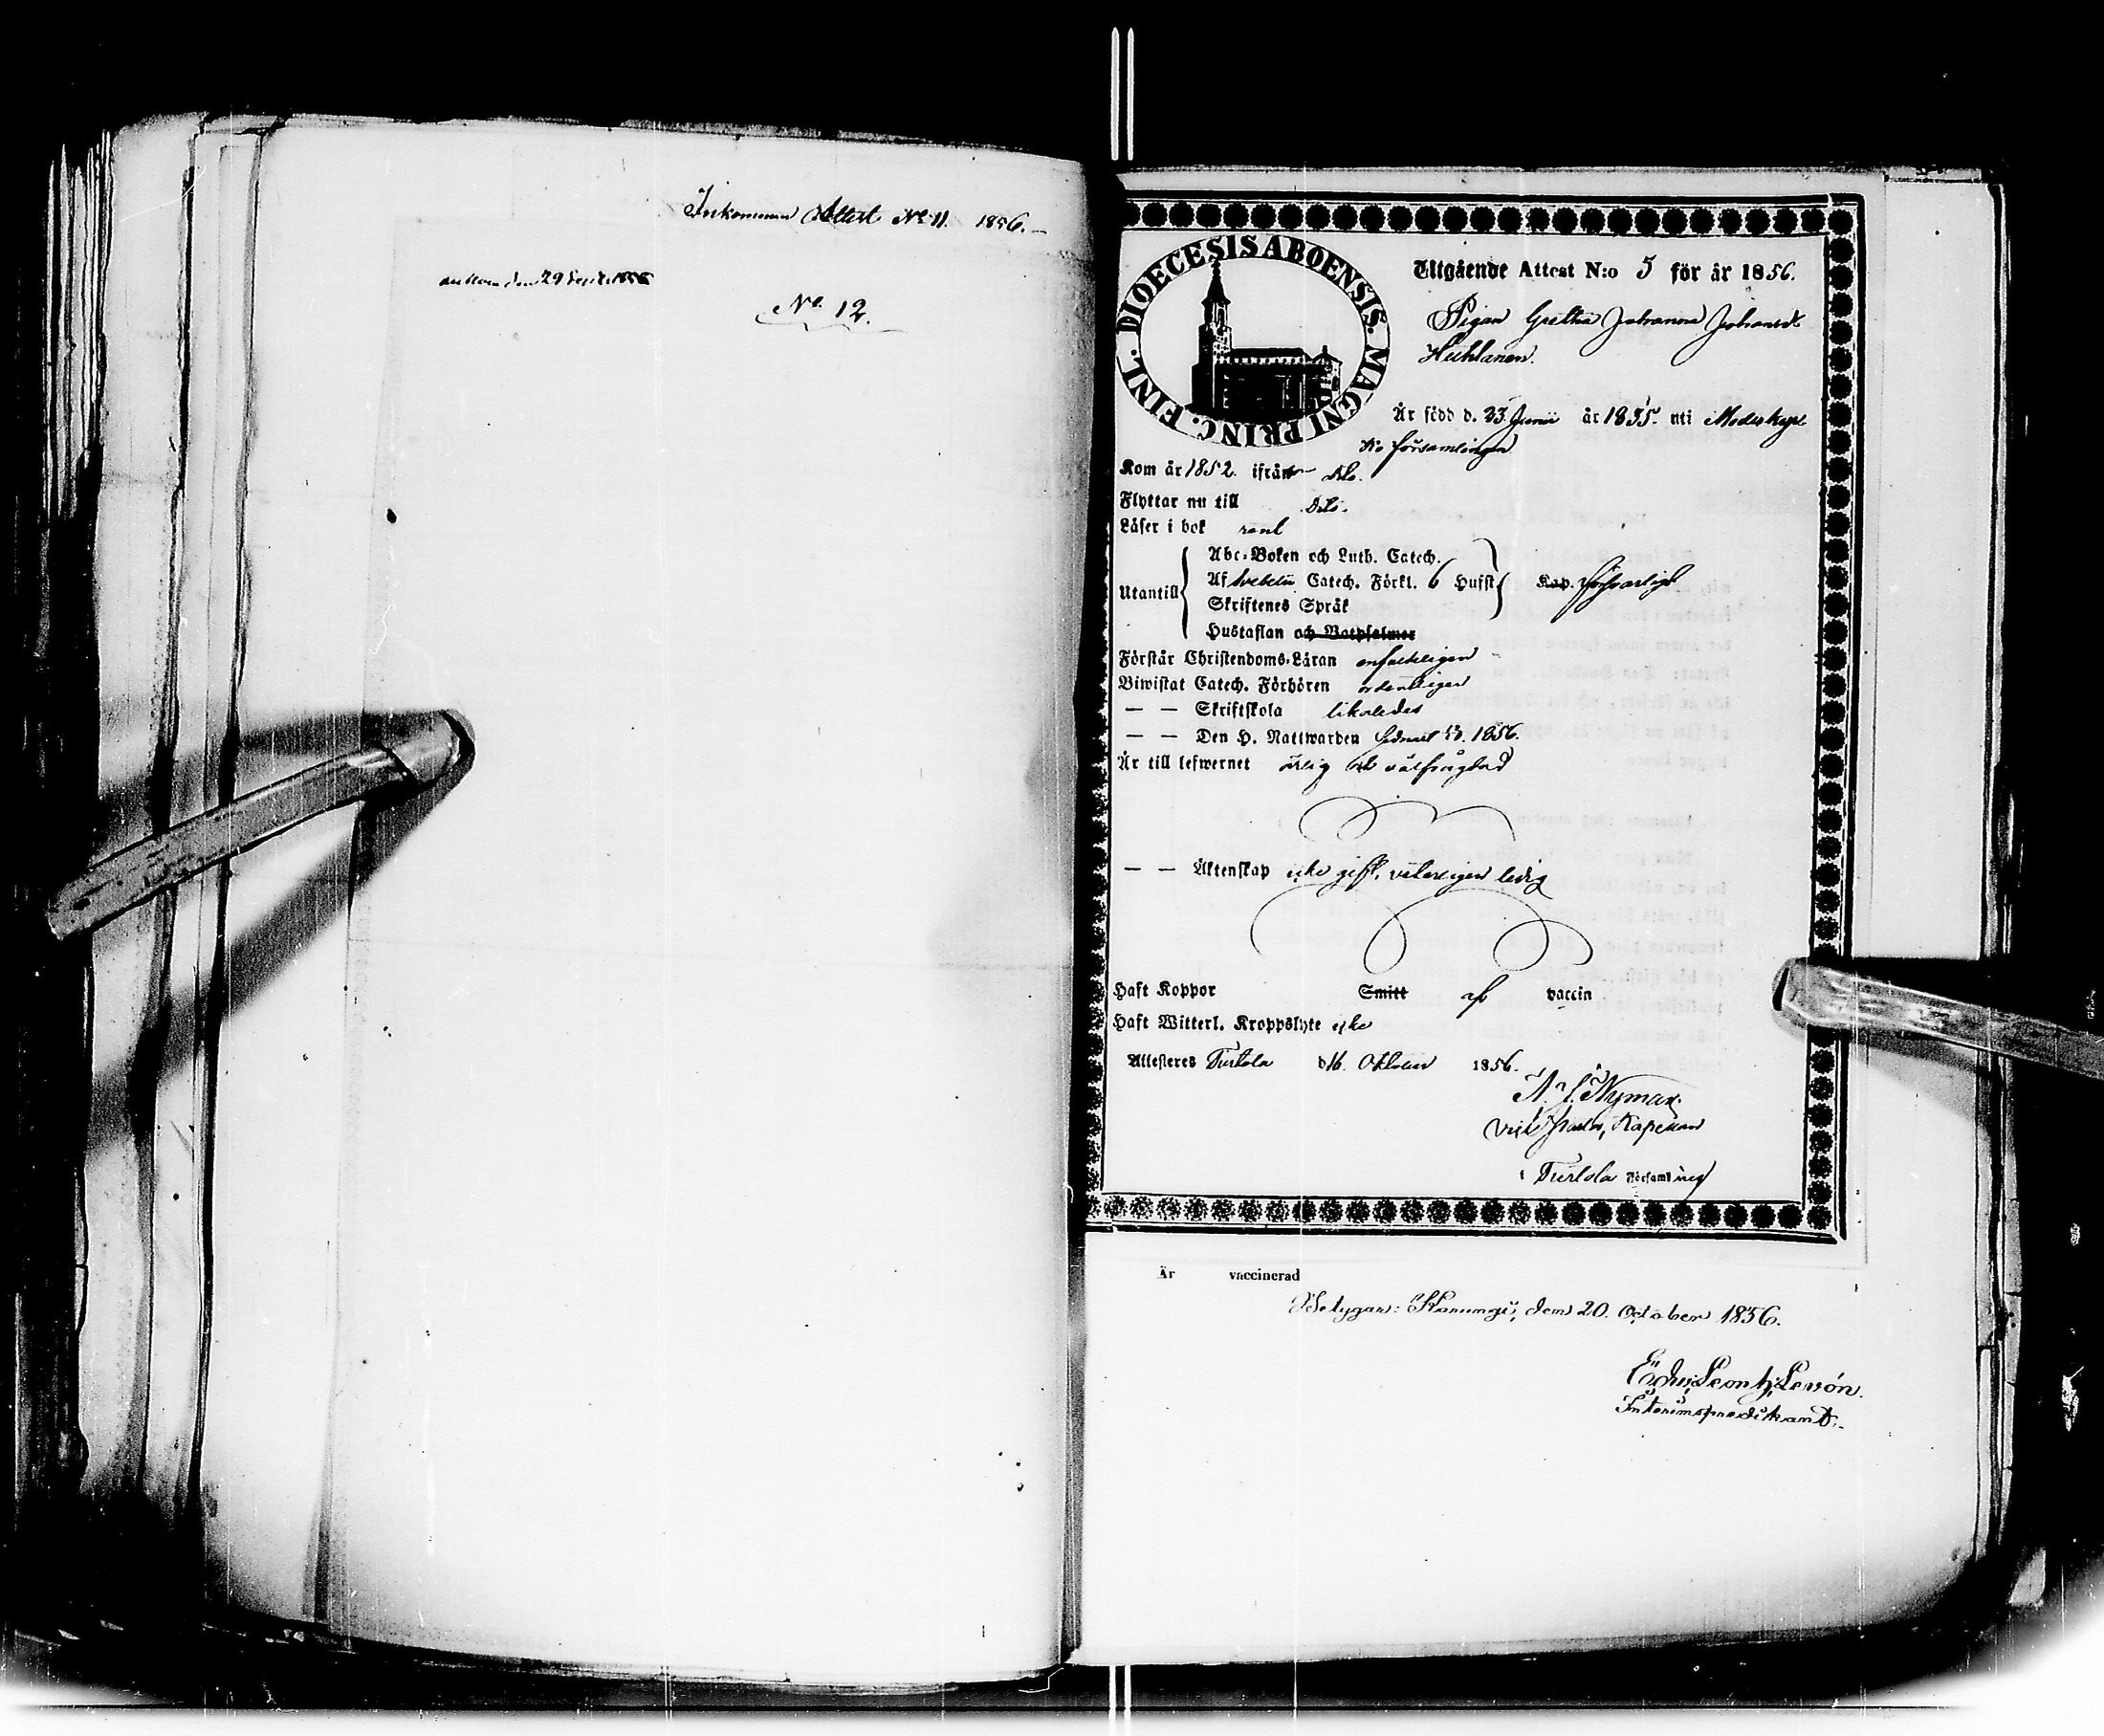 Inkommen Attest No 11. 1856.
ankom den 29 Sept. 1856
No. 12.
DIOECESIS ABOENSIS. MAGNI PRINC. FINL.
Utgående Attest N:o 5 för år 1856.
Pigan Gretha Johanna Johansdr
Huhtanen.
Är född d. 23 Junii år 1835. uti Moderkyrko
församlingen
Kom år 1852. ifrån dito.
Flyttar nu till dito.
Läser i bok rent
Utantill
Abc-Boken och Luth. Catech.
Af Svebelii Catech. Förkl. 6 Hufst Kap. försvarligt
Skriftenes Språk
Hustaflan och Botpsalmer
Förstår Christendoms-Läran enfaldeligen
Biwistat Catech. Förhören ordentligen
— — Skriftskola likaledes
— — Den H. Nattwarden 1856.
Är till lefwernet ärlig och välfrägdad
— — Äktenskap icke gift, veterligen ledig
Haft Koppor Smitt af vaccin
Haft Witterl. Kroppslyte icke
Attesteres Turtola d 16. Oktober 1856.
N. J. Nyman
Vice Pastor, Kapellan
i Turtola Församling
Är vaccinerad
Betygar: Karungi, dem 20. October 1856.
Edv. Leonh. Levón.
Interimspredikant.